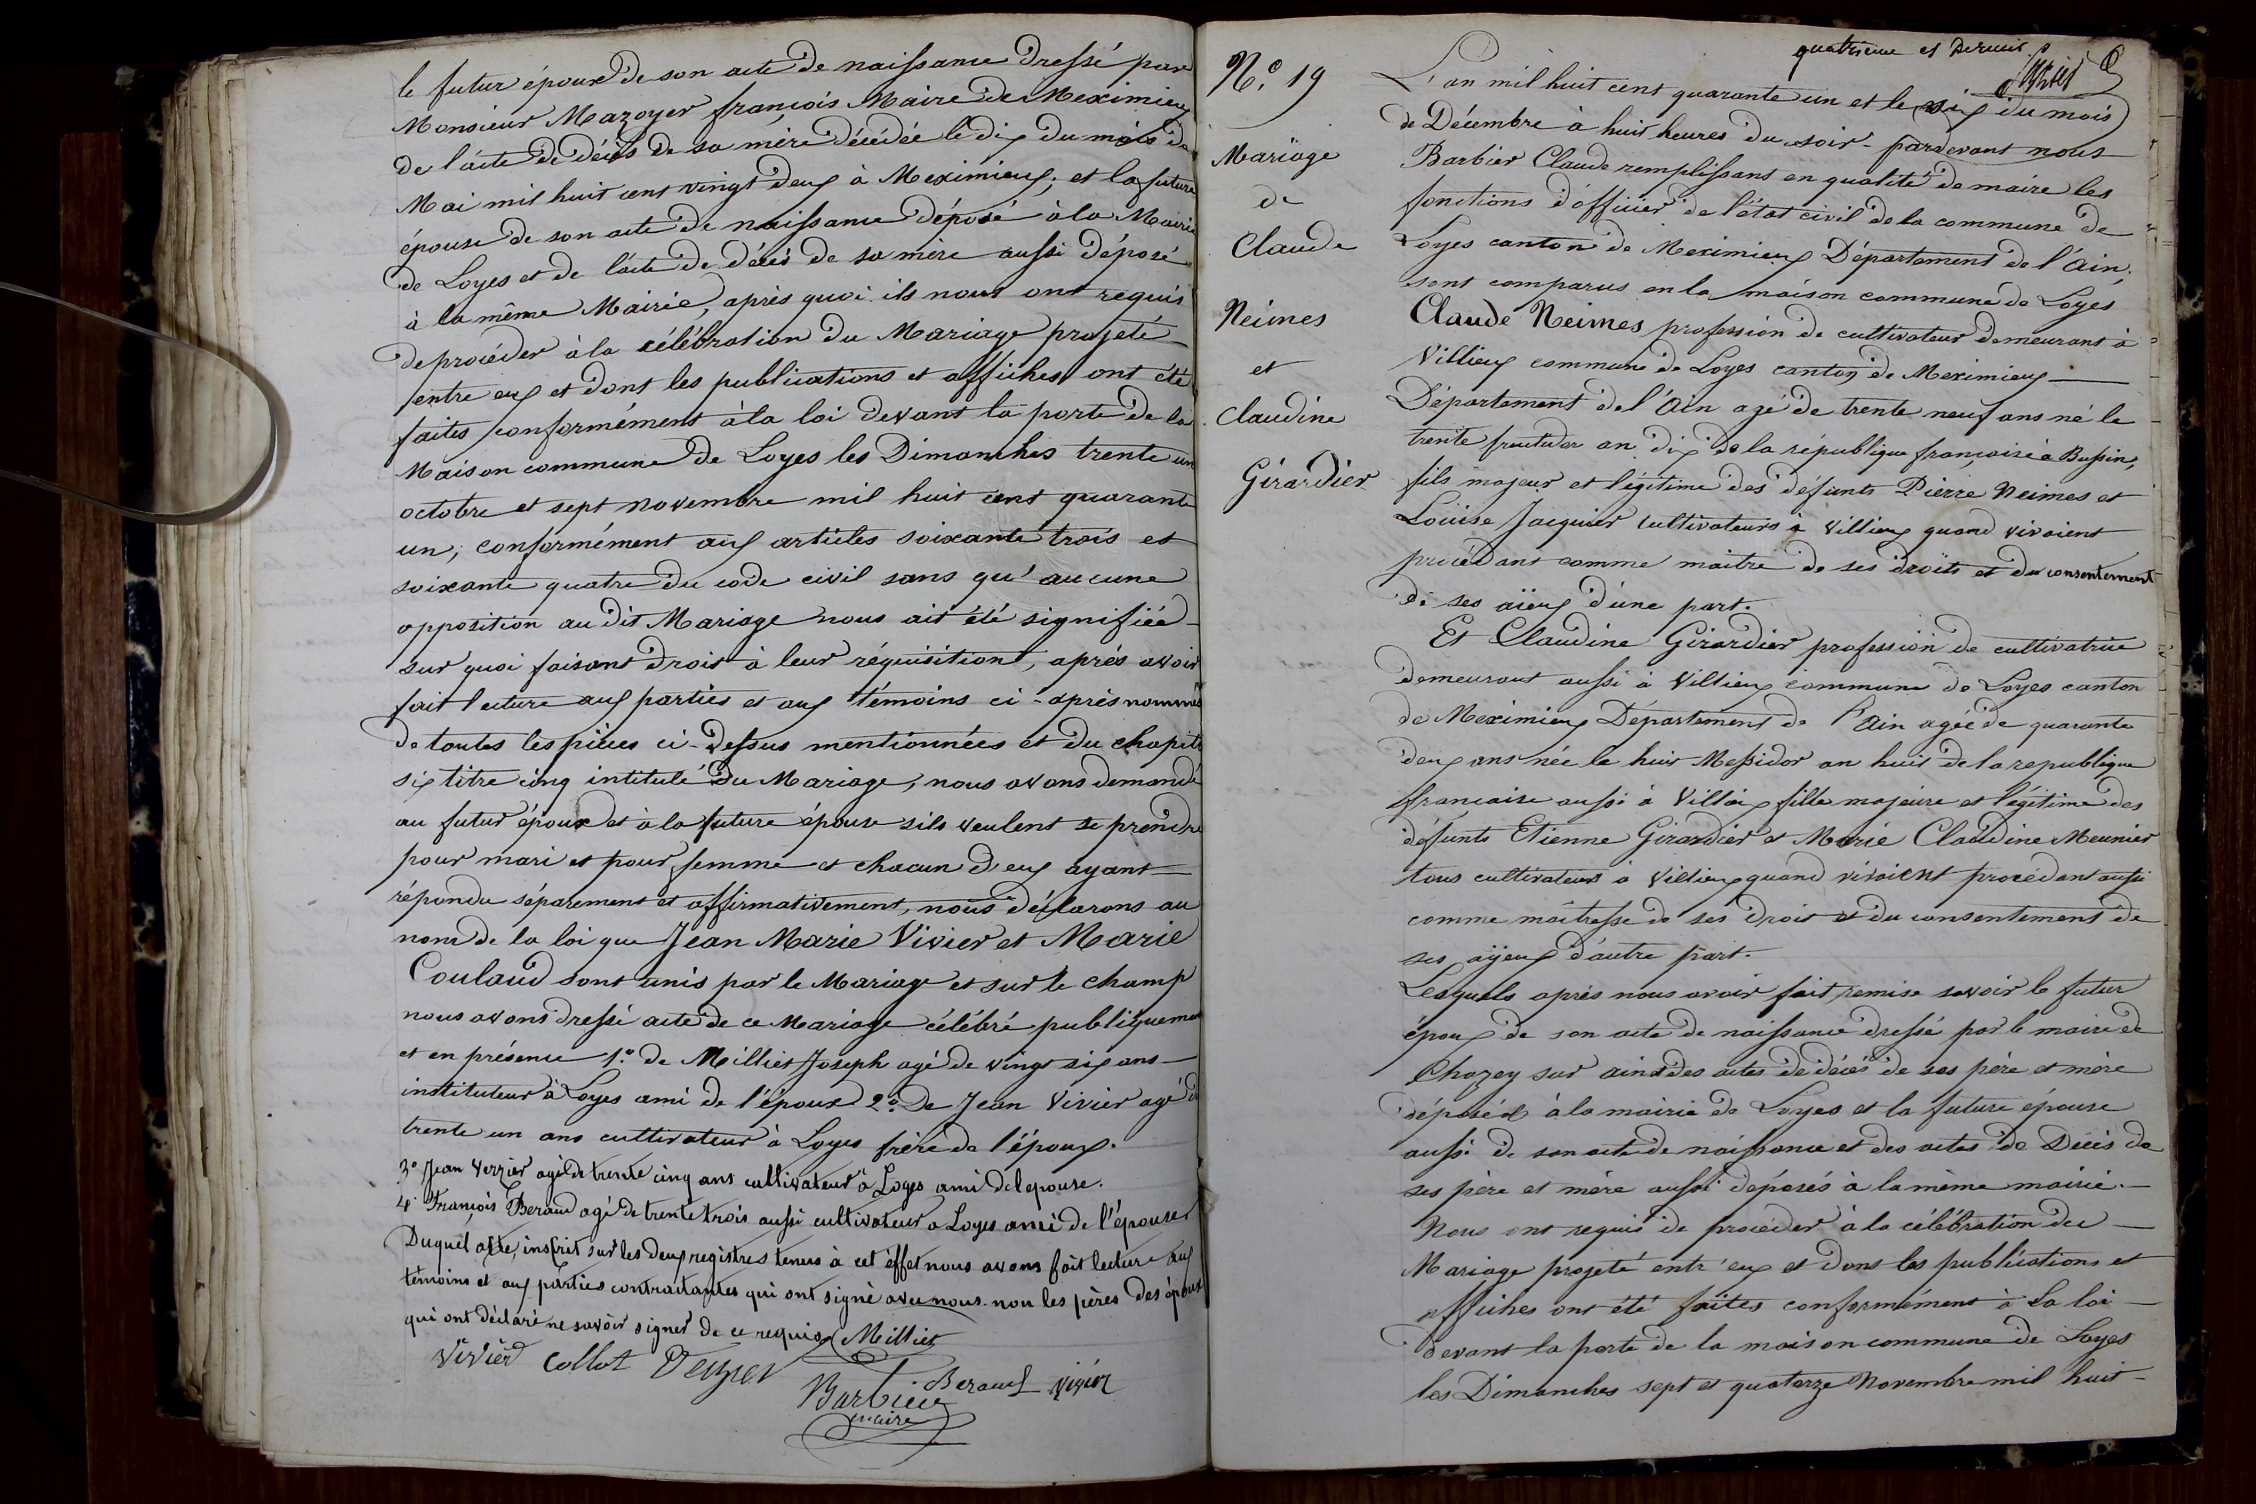 le futur époux de son acte de naissance dressé par
Monsieur Mazoyer françois Maire de Meximieux
de l'acte de décès de sa mère décédée le dix du mois de
Mai mil huit cent vingt deux à Meximieux; et la future
épouse de son acte de naissance déposé à la Mairie
de Loyes et de l'acte de décès de sa mère aussi déposé
à la même Mairie, après quoi ils nous ont requis
de procéder à la célébration du Mariage projeté
entre eux et dont les publications et affiches ont été
faites conformément à la loi devant la porte de la
Maison commune de Loyes les Dimanches trente un
octobre et sept novembre mil huit cent quarante
un; conformément aux articles soixante trois et
soixante quatre du code civil sans qu'aucune
opposition au dit Mariage nous ait été signifiée
sur quoi faisant droit à leur réquisition, après avoir
fait lecture aux parties et aux témoins ci-après nommés
de toutes les pièces ci-dessus mentionnées et du chapitre
six titre cinq intitulé du Mariage, nous avons demandé
au futur époux et à la future épouse s'ils veulent se prendre
pour mari et pour femme et chacun d'eux ayant
répondu séparement et affirmativement, nous déclarons au
nom de la loi que Jean Marie Vivier et Marie
Coulaud sont unis par le Mariage et sur le champ
nous avons dressé acte de ce Mariage célébré publiquement
et en présence 1.º de Milliet Joseph agé de vingt six ans
instituteur à Loyes ami de l'époux 2.º de Jean Vivier agé de
trente un ans cultivateur à Loyes frère de l'époux.
3º Jean Verzier agé de trente cinq ans cultivateur à Loyes ami de lepouse.
4º François Beraud agé de trente trois aussi cultivateur a Loyes ami de l'épouse
Duquel acte, inscrit sur les deux registres tenus à cet éffet nous avons fait lecture aux
témoins et aux parties contractantes qui ont signé avec nous non les pères des époux
qui ont déclaré ne savoir signer de ce requis Milliet
Vivier Collot
Beraud Vivier
Barbier
maire
quatrième et dernier
Nº. 19
Mariage
de
Claude
Neimes
et
Claudine
Girardier
L'an mil huit cent quarante un et le six du mois
de Décembre à huit heures du soir - pardevant nous
Barbier Claude remplissant en qualité de maire les
fonctions d'officier de l'état civil de la commune de
Loyes canton de Meximieux Département de l'Ain,
sont comparus en la maison commune de Loyes
Claude Neimes profession de cultivateur demeurant à
Villieux commune de Loyes canton de Meximieux
Département de l'Ain agé de trente neuf ans né le
trente fructidor an dix de la république françoise à
fils majeur et légitime des défunts Pierre Neimes et
Louise Jacquier cultivateurs à Villieux quand vivoient
procédant comme maitre de ses droits et du consentement
de ses aïeux d'une part.
Et Claudine Girardier profession de cultivatrice
demeurant aussi à Villieux commune de Loyes canton
de Meximieux Département de l'Ain agée de quarante
deux ans née le huit Messidor an huit de la republique
francaise aussi à Villieux fille majeure et légitime des
défunts Etienne Girardier et Marie Claudine Meunier
tous cultivateurs à Villieux quand vivoient procédant aussi
comme maîtresse de ses droit et du consentement de
ses ayeux d'autre part.
Lesquels après nous avoir fait remise savoir le futur
époux de son acte de naissance dressé par le maire de
Chazey sur ain des actes de décès de ses père et mère
déposés à la mairie de Loyes et la future épouse
aussi de son acte de naissance et des actes de Décès de
ses père et mère aussi déposés à la même mairie.
Nous ont requis de procéder à la célébration du
Mariage projeté entr'eux et dont les publications et
affiches ont été faites conformément à la loi
devant la porte de la maison commune de Loyes
les Dimanches sept et quatorze Novembre mil huit